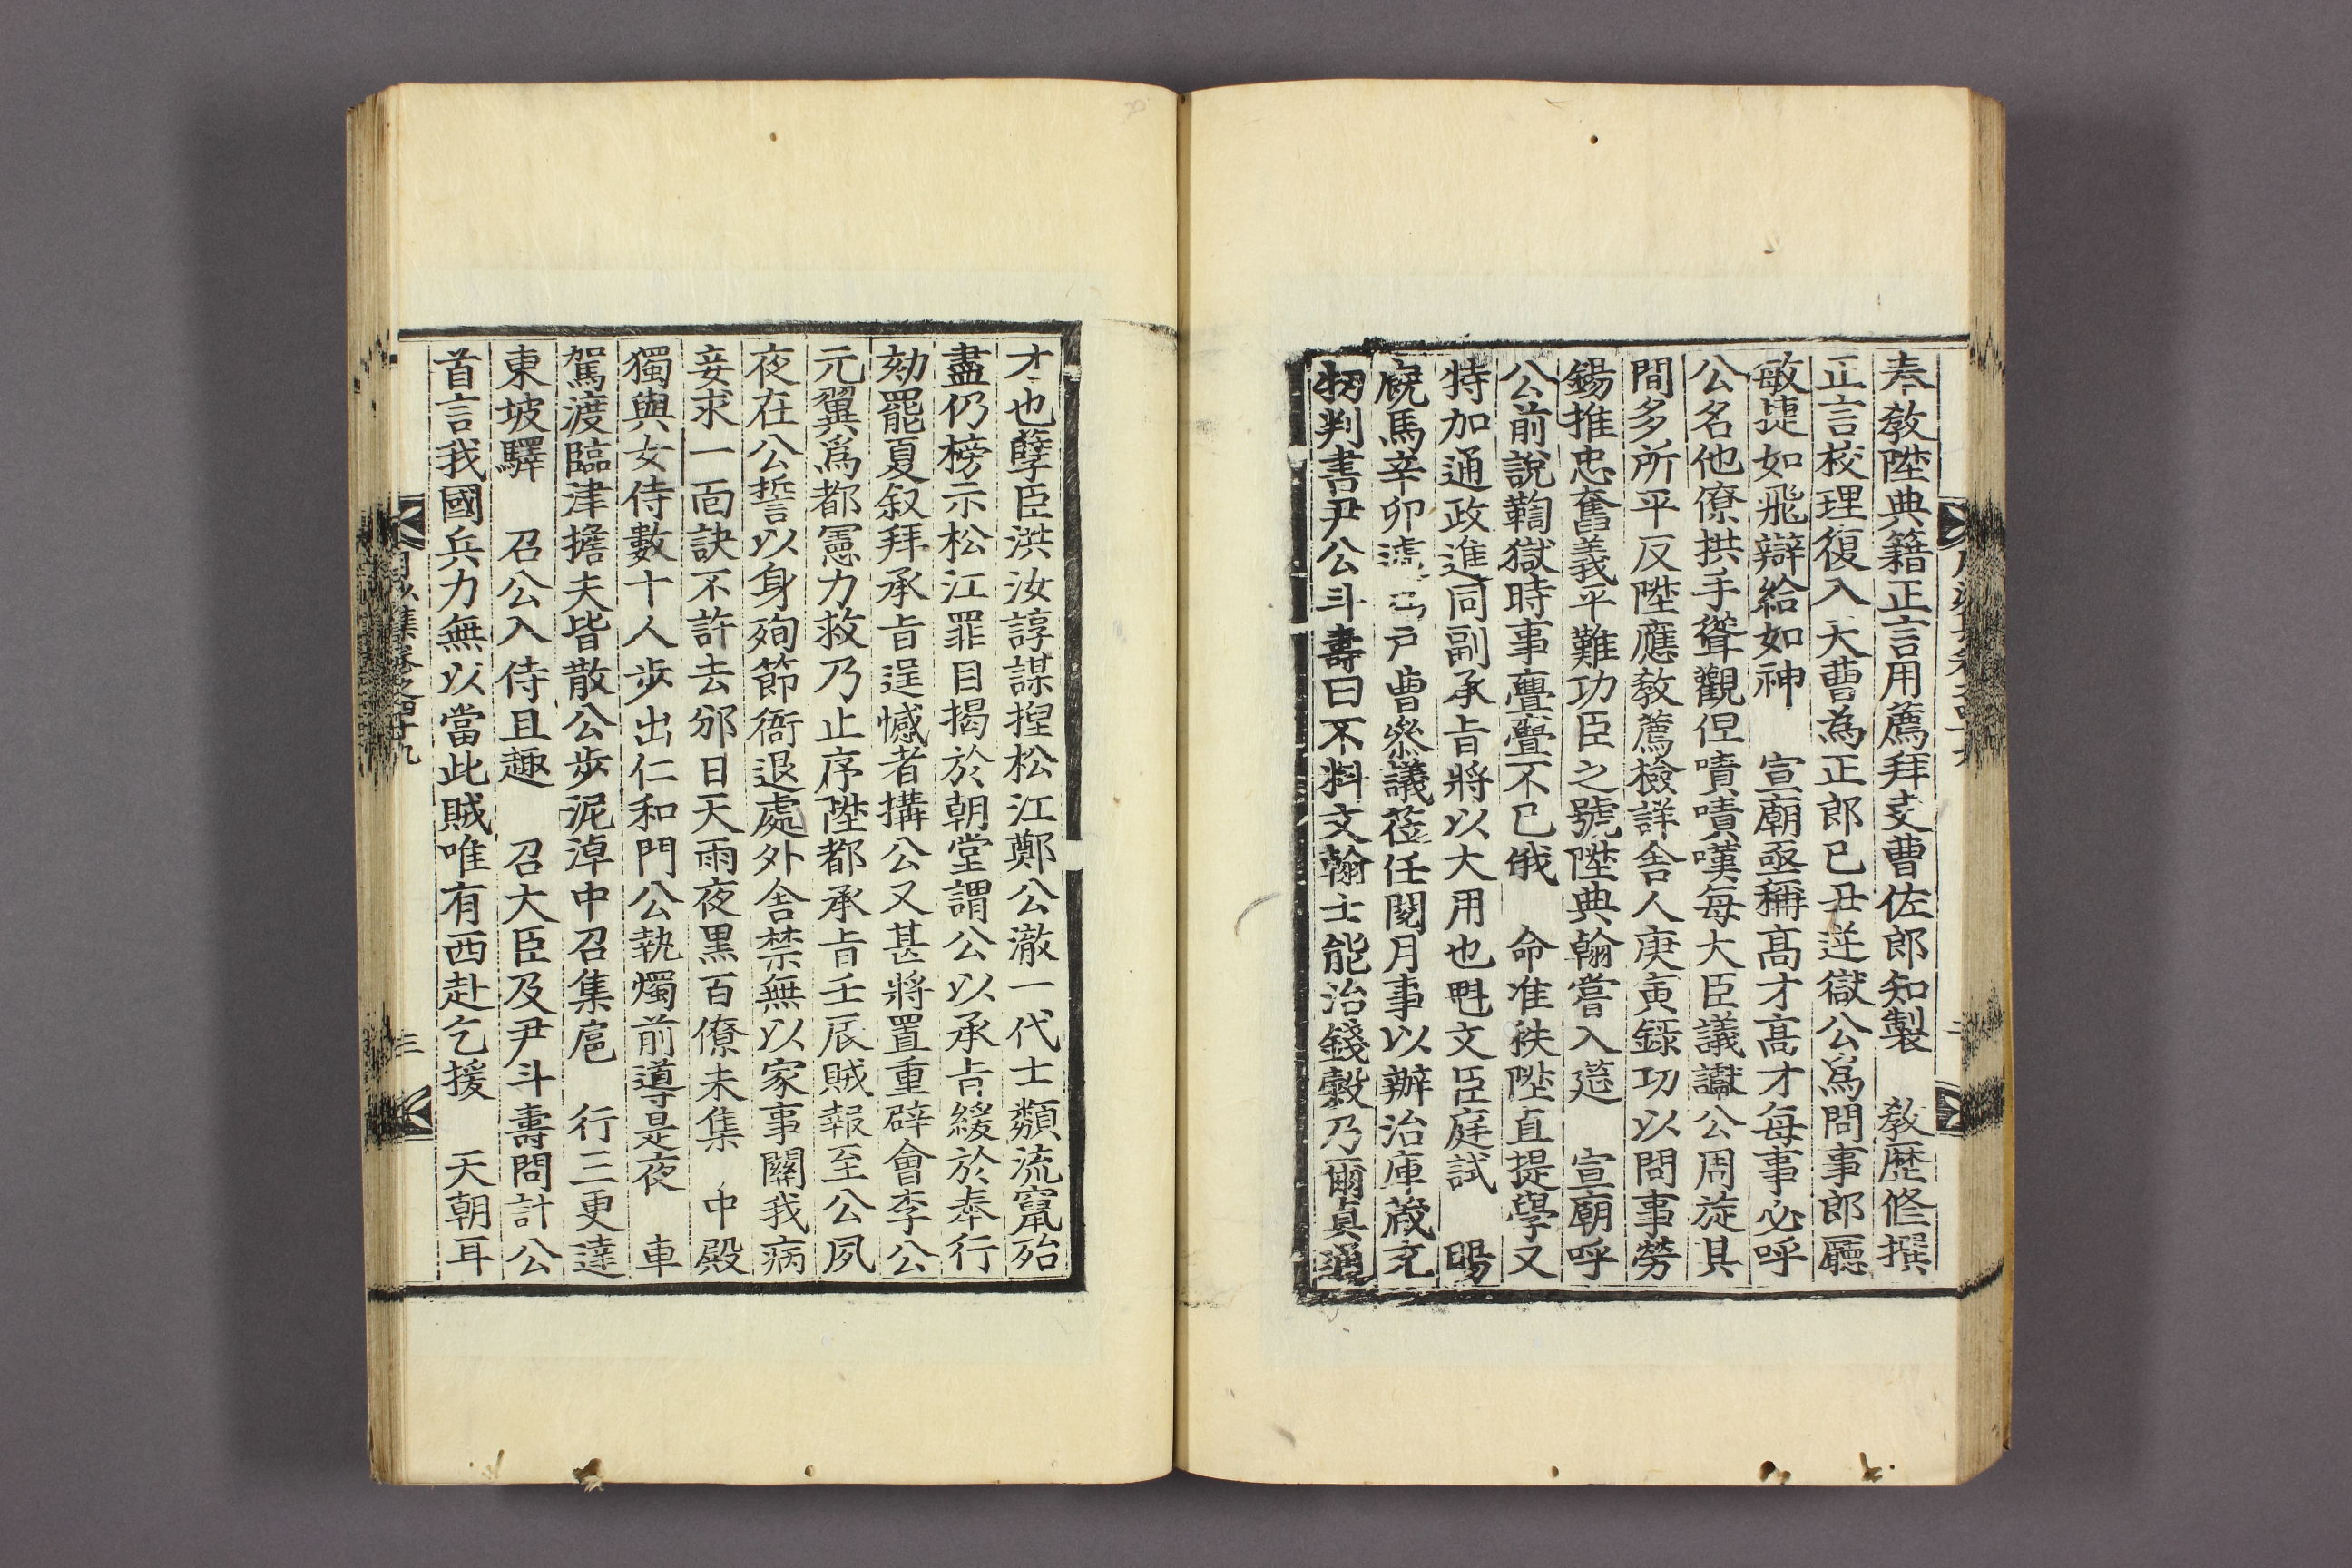 奉教陞典籍正言用薦拜吏曹佐郎知製　教歷修撰
正言校理復入天曹為正郎己丑逆獄公爲問事郎廳
敏捷如飛辯給如神　宣廟亟稱高才高才每事必呼
公名他僚拱手聳觀但嘖嘖嘆每大臣議讞公周旋其
間多所平反陞應敎薦檢詳舍人庚寅錄功以問事勞
錫推忠奮義平難功臣之號陞典翰嘗入筵　宣廟呼
公前說鞫獄時事亹亹不已俄　命准秩陞直提學又
特加通政進同副承旨將以大用也魁文臣庭試　賜
廐馬辛卯　戶曹參議莅任閱月事以辦治庫藏充
牣判書尹公斗壽曰不料文翰士能治錢穀乃爾眞通
才也孽臣洪汝諄謀捏松江鄭公澈一代士類流竄殆
盡仍榜示松江罪目揭於朝堂謂公以承旨緩於奉行
劾罷夏叙拜承旨逞憾者搆公又甚將置重辟會李公
元翼爲都憲力救乃止序陞都承旨壬辰賊報至公夙
夜在公誓以身殉節衙退處外舍禁無以家事關我病
妾求一面訣不許去邠日天雨夜黑百僚未集　中殿
獨與女侍數十人步出仁和門公執燭前導是夜　車
駕渡臨津擔夫皆散公步泥淖中召集扈　行三更達
東坡驛　召公入侍且趣　召大臣及尹斗壽問計公
首言我國兵力無以當此賊唯有西赴乞援　天朝耳
月沙集卷之四十九　三